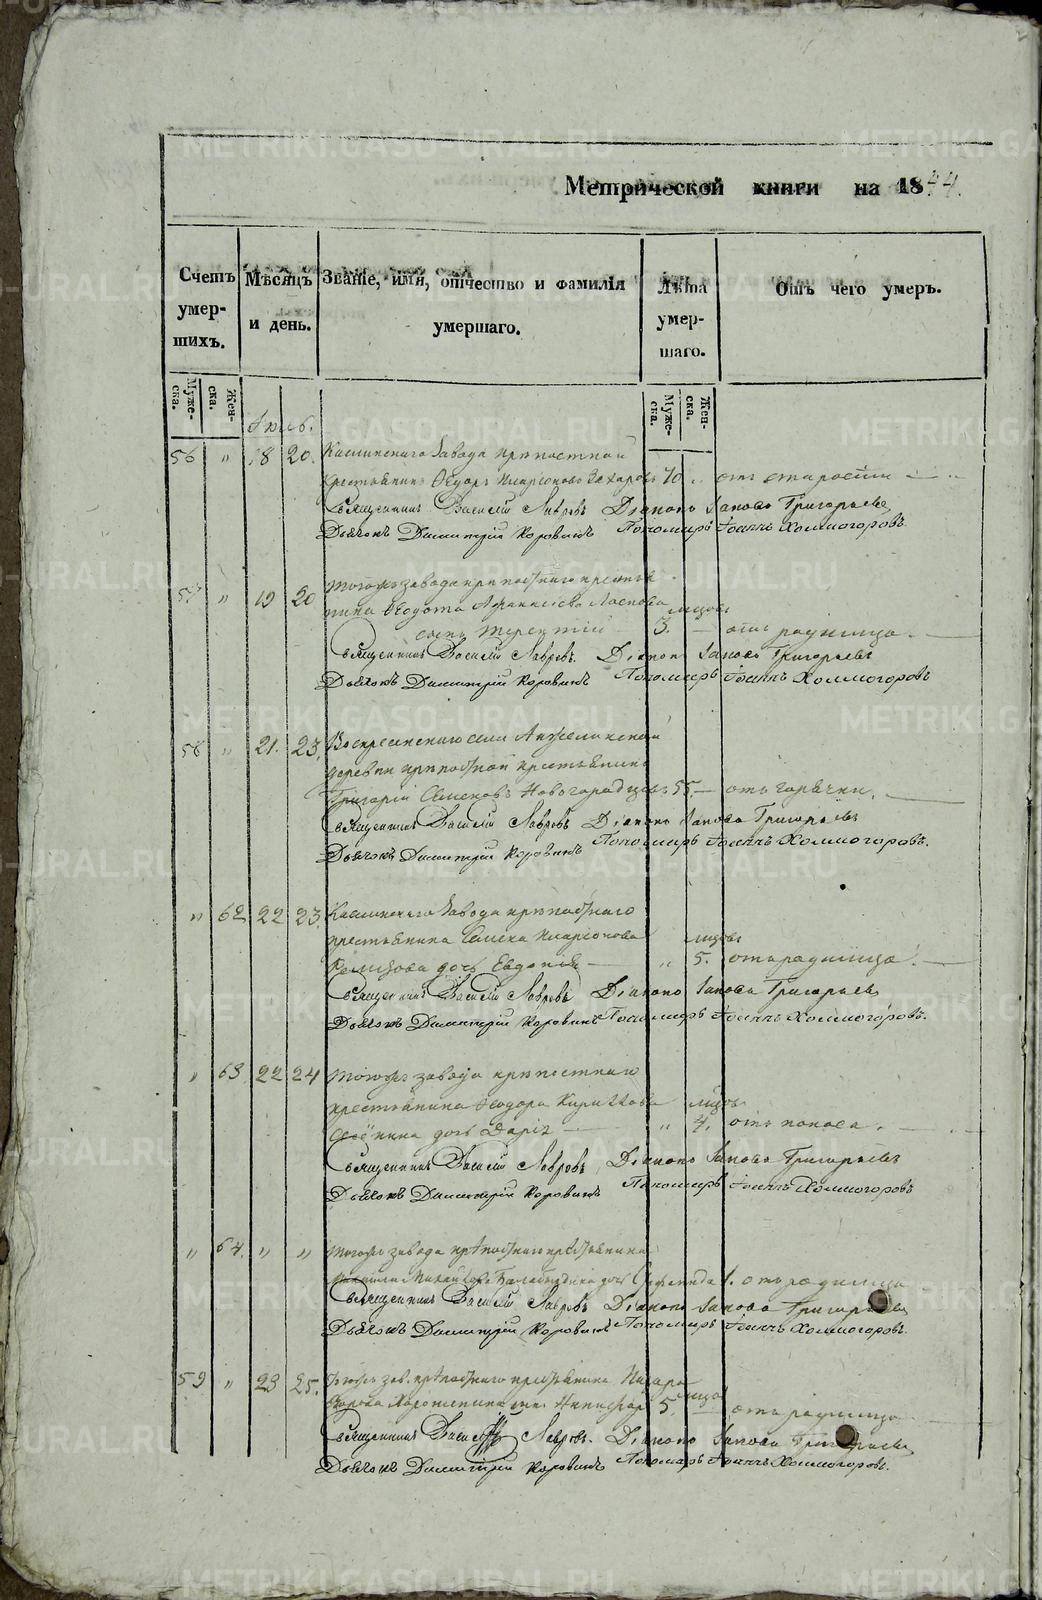 METRIKI.GASO-URAL.RU
Метрической книги на 1844.
Счетъ умершихъ.
Мѣсяцъ и день.
Званіе, имя, отчество и фамилія умершаго.
Лѣта умершаго.
Отъ чего умеръ.
Мужеска. Женска. Мужеска. Женска.
Іюль.
56 " 18 20. Каслинскаго завода крѣпостной
крестьянинъ Ѳедоръ Иларіоновъ Захаровъ 70 " отъ старости
Священникъ Василій Лавровъ Діаконъ Іаковъ Григорьевъ
Дьячокъ Димитрій Коровинъ Пономарь Іоаннъ Холмогоровъ
57 " 19 20 Тогожъ завода крѣпостнаго крестья
нина Ѳедота месяцовъ
сынъ Терентій 3. отъ родимца.
Священникъ Василій Лавровъ. Діаконъ Іаковъ Григорьевъ
Дьячокъ Димитрій Коровинъ Пономарь Іоаннъ Холмогоровъ
58 " 21. 23. Воскресенскаго села
деревни крѣпостной крестьянинъ
Григорій Семеновъ Новогородцовъ 55 отъ горячки.
Священникъ Василій Лавровъ Діаконъ Іаковъ Григорьевъ
Дьячокъ Димитрій Коровинъ Пономарь Іоаннъ Холмогоровъ.
" 62 22 23. Каслинскаго завода крѣпостнаго
крестьянина Семена Иларіонова месяцовъ
дочь Евдокія " 5. отъ родимца.
Священникъ Василій Лавровъ Діаконъ Іаковъ Григорьевъ
Дьячокъ Димитрій Коровинъ Пономарь Іоаннъ Холмогоровъ.
" 63 22 24 Тогожъ завода крѣпостнаго
крестьянина Ѳеодора Кирилова месяцовъ
дочь Дарія " 4. отъ поноса.
Священникъ Василій Лавровъ Діаконъ Іаковъ Григорьевъ
Дьячокъ Димитрій Коровинъ Пономарь Іоаннъ Холмогоровъ
" 64. " " Тогожъ завода крѣпостнаго крестьянина
Михайлова дочь 1. отъ родимца
Священникъ Василій Лавровъ Діаконъ Іаковъ Григорьевъ
Дьячокъ Димитрій Коровинъ Пономарь Іоаннъ Холмогоровъ.
59 " 23 25. Тогожъ зав. крѣпостнаго крестьянина
сынъ Никифоръ 5. отъ родимца
Священникъ Василій Лавровъ. Діаконъ Іаковъ Григорьевъ
Дьячокъ Димитрій Коровинъ Пономарь Іоаннъ Холмогоровъ.